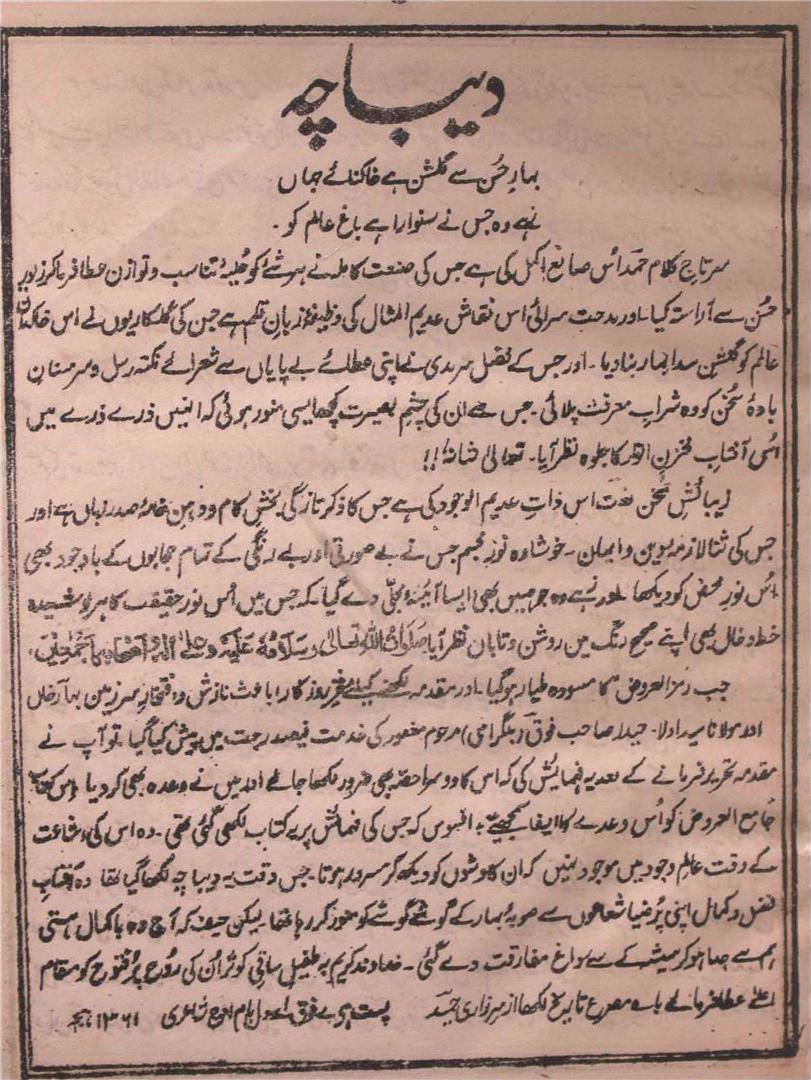 دیباچہ
بہارِ حُسن سے گلشن ہے خاکنائے جہاں
زہے وہ جس نے سنوارا ہے باغ عالم کو۔
سرتاجِ کلام حمد اُس صانع اکمل کی ہے جس کی صنعت کاملہ نے ہر شے کو حُلیۂ تناسب و توازن عطا فرما کر زیور
حُسن سے آراستہ کیا۔ اور مدحت سرائی اس نقاش عدیم المثال کی وظیفۂ زبانِ قلم ہے جس کی گلکاریوں نے اس خاکدان
عالم کو گلشنِ سدا بہار بنا دیا۔ اور جس کے فضل سرمدی نے اپنی عطائے بے پایاں سے شعرائے نکتہ رس و سرمستان
بادۂ سخُن کو وہ شرابِ معرفت پلائی۔ جس سے ان کی چشمِ بصیرت کچھ ایسی منور ہوئی کہ انہیں ذرے ذرے میں
اُس آفتاب مخزنِ انوار کا جلوہ نظر آیا۔ تعالیٰ شانہٗ!!
زیبائش سخن نعت اس ذاتِ عدیم الوجود کی ہے جس کا ذکر تازگی بخشِ کام و دہن خامۂ صدر زباں ہے اور
جس کی ثنا لازمۂ دین و ایمان۔ خوشا وہ نورِ مجسم جس نے بے صورتی اور بے رنگی کے تمام حجابوں کے باوجود بھی
اُس نورِ محض کو دیکھا۔ اور زہے وہ جو ہمیں بھی ایسا آئینۂ مجلّٰی دے گیا۔ کہ جس میں اُس نور حقیقت کا ہر پوشیدہ
خط و خال بھی اپنے صحیح رنگ میں روشن و تاباں نظر آیا صَلَوَاتُ اللہِ تَعَالیٰ وَسَلَامُہٗ عَلَیْہِ وَعَلیٰ اٰلِہٖ وَاَصْحَابِہٖ اَجْمَعِیْنَ۔
جب رمز العروض کا مسودہ طیار ہو گیا۔ اور مقدمہ لکھنے کیلئے فخرِ روزگار باعث نازش و افتخارِ سرزمین بہار خان
مولانا سید اولاد حیدر صاحب فوقؔ (بلگرامی) مرحوم مغفور کی خدمت فیضدرجت میں پیش کیا گیا۔ تو آپ نے
مقدمہ تحریر فرمانے کے بعد یہ فہمائش کی کہ اس کا دوسرا حصہ بھی ضرور لکھا جائے اور میں نے وعدہ بھی کر دیا اس کتاب
جامع العروض کو اُس وعدے کا ایفا سمجھیئے۔ افسوس کہ جس کی فہمائش پر یہ کتاب لکھی گئی تھی۔ وہ اس کی اشاعت
کے وقت عالم وجود میں موجود نہیں کہ ان کاوشوں کو دیکھ کر مسرور ہوتا۔ جس وقت یہ دیباچہ لکھا گیا تھا وہ آفتابِ
فضل و کمال اپنی پُر ضیا شعاعوں سے صوبۂ بہار کے گوشے گوشے کو منور کر رہا تھا لیکن حیف کہ آج وہ باکمال ہستی
ہم سے جدا ہو کر ہمیشہ کے لئے داغ مفارقت دے گئی۔ خداوند کریم بہ طفیل ساقیِ کوثر اُن کی رُوح پُرفتوح کو مقام
اعلیٰ عطا فرمائے مصرع تاریخ لکھا از سرِ زاری حمیدؔ پست ہوئی بے فوق اوج شاعری ۱۳۶۱ ہجری